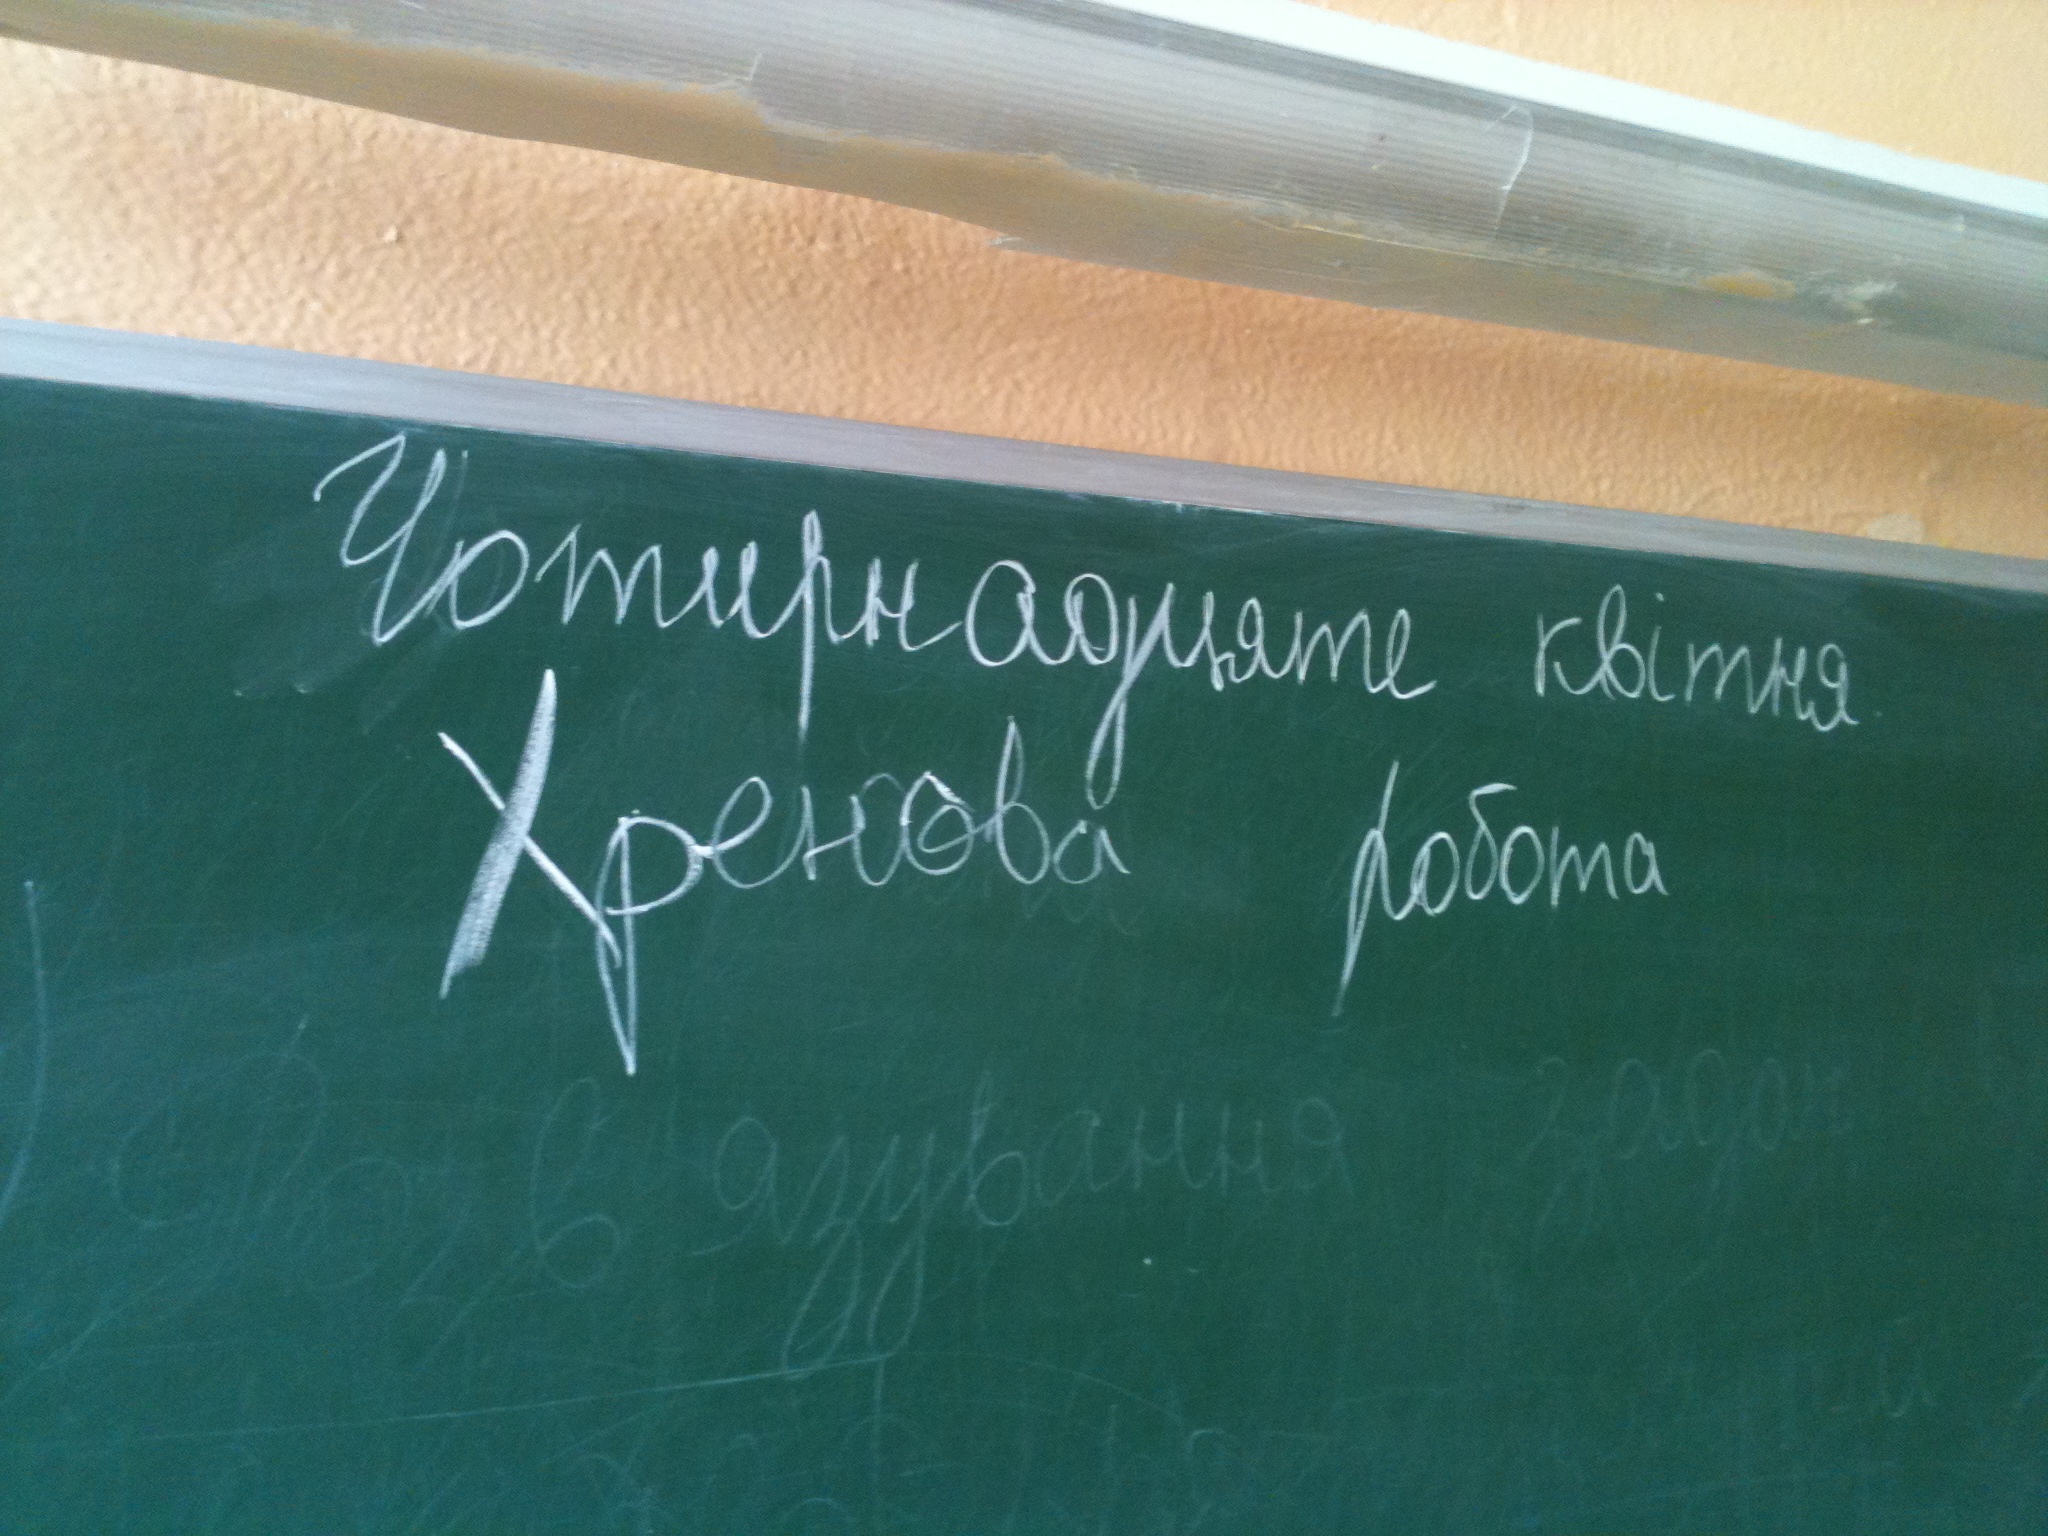 Чотирнадцяте квітня
Хренова робота
Розв'язування задач